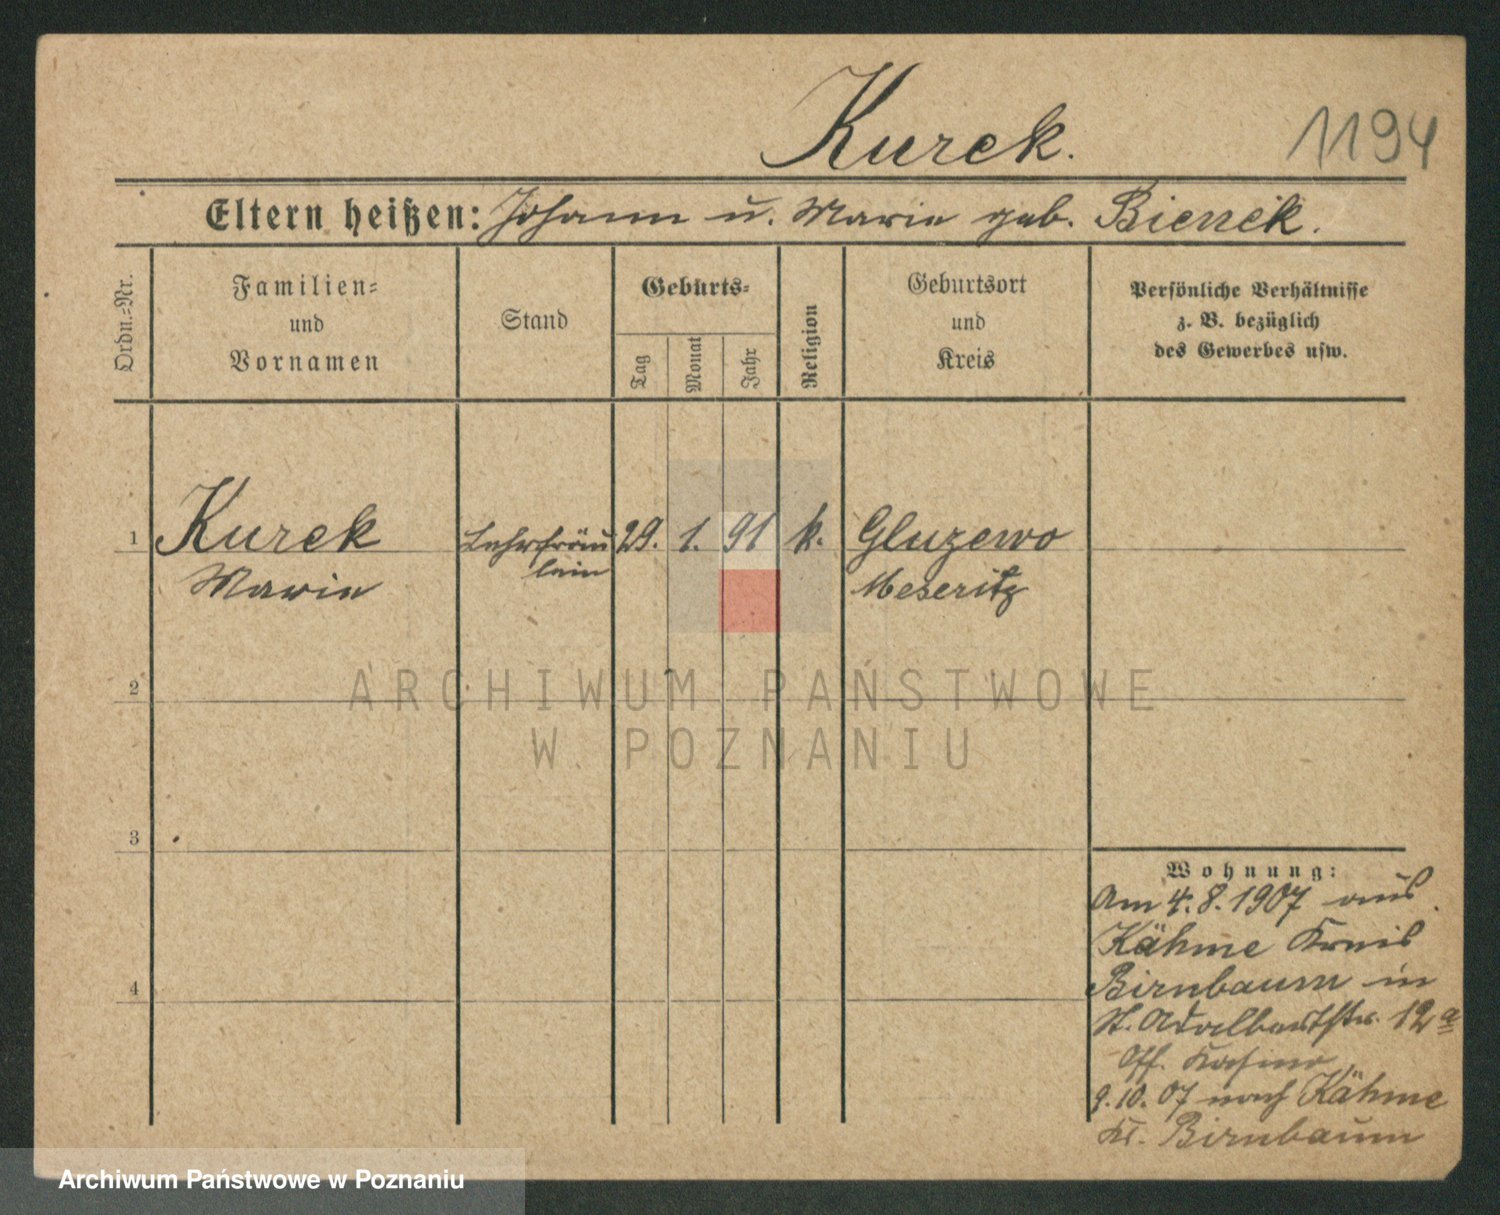 Kurek.
1194
Eltern heißen: Johann u. Marie geb. Bienek.
Ordn.-Nr.
Familien-
und
Vornamen
Stand
Geburts-
Tag
Monat
Jahr
Religion
Geburtsort
und
Kreis
Persönliche Verhältnisse
z. B. bezüglich
des Gewerbes usw.
1 Kurek Lehrfräu 29. 1. 91 k. Gluzewo
Marie lein Meseritz
2
ARCHIWUM PAŃSTWOWE
W POZNANIU
3
Wohnung:
Am 4.8.1907 aus
Kähme Kreis
4 Birnbaum in
St. Adalbertstr. 12a
Off. Kasino
9.10.07 nach Kähme
Kr. Birnbaum
Archiwum Państwowe w Poznaniu